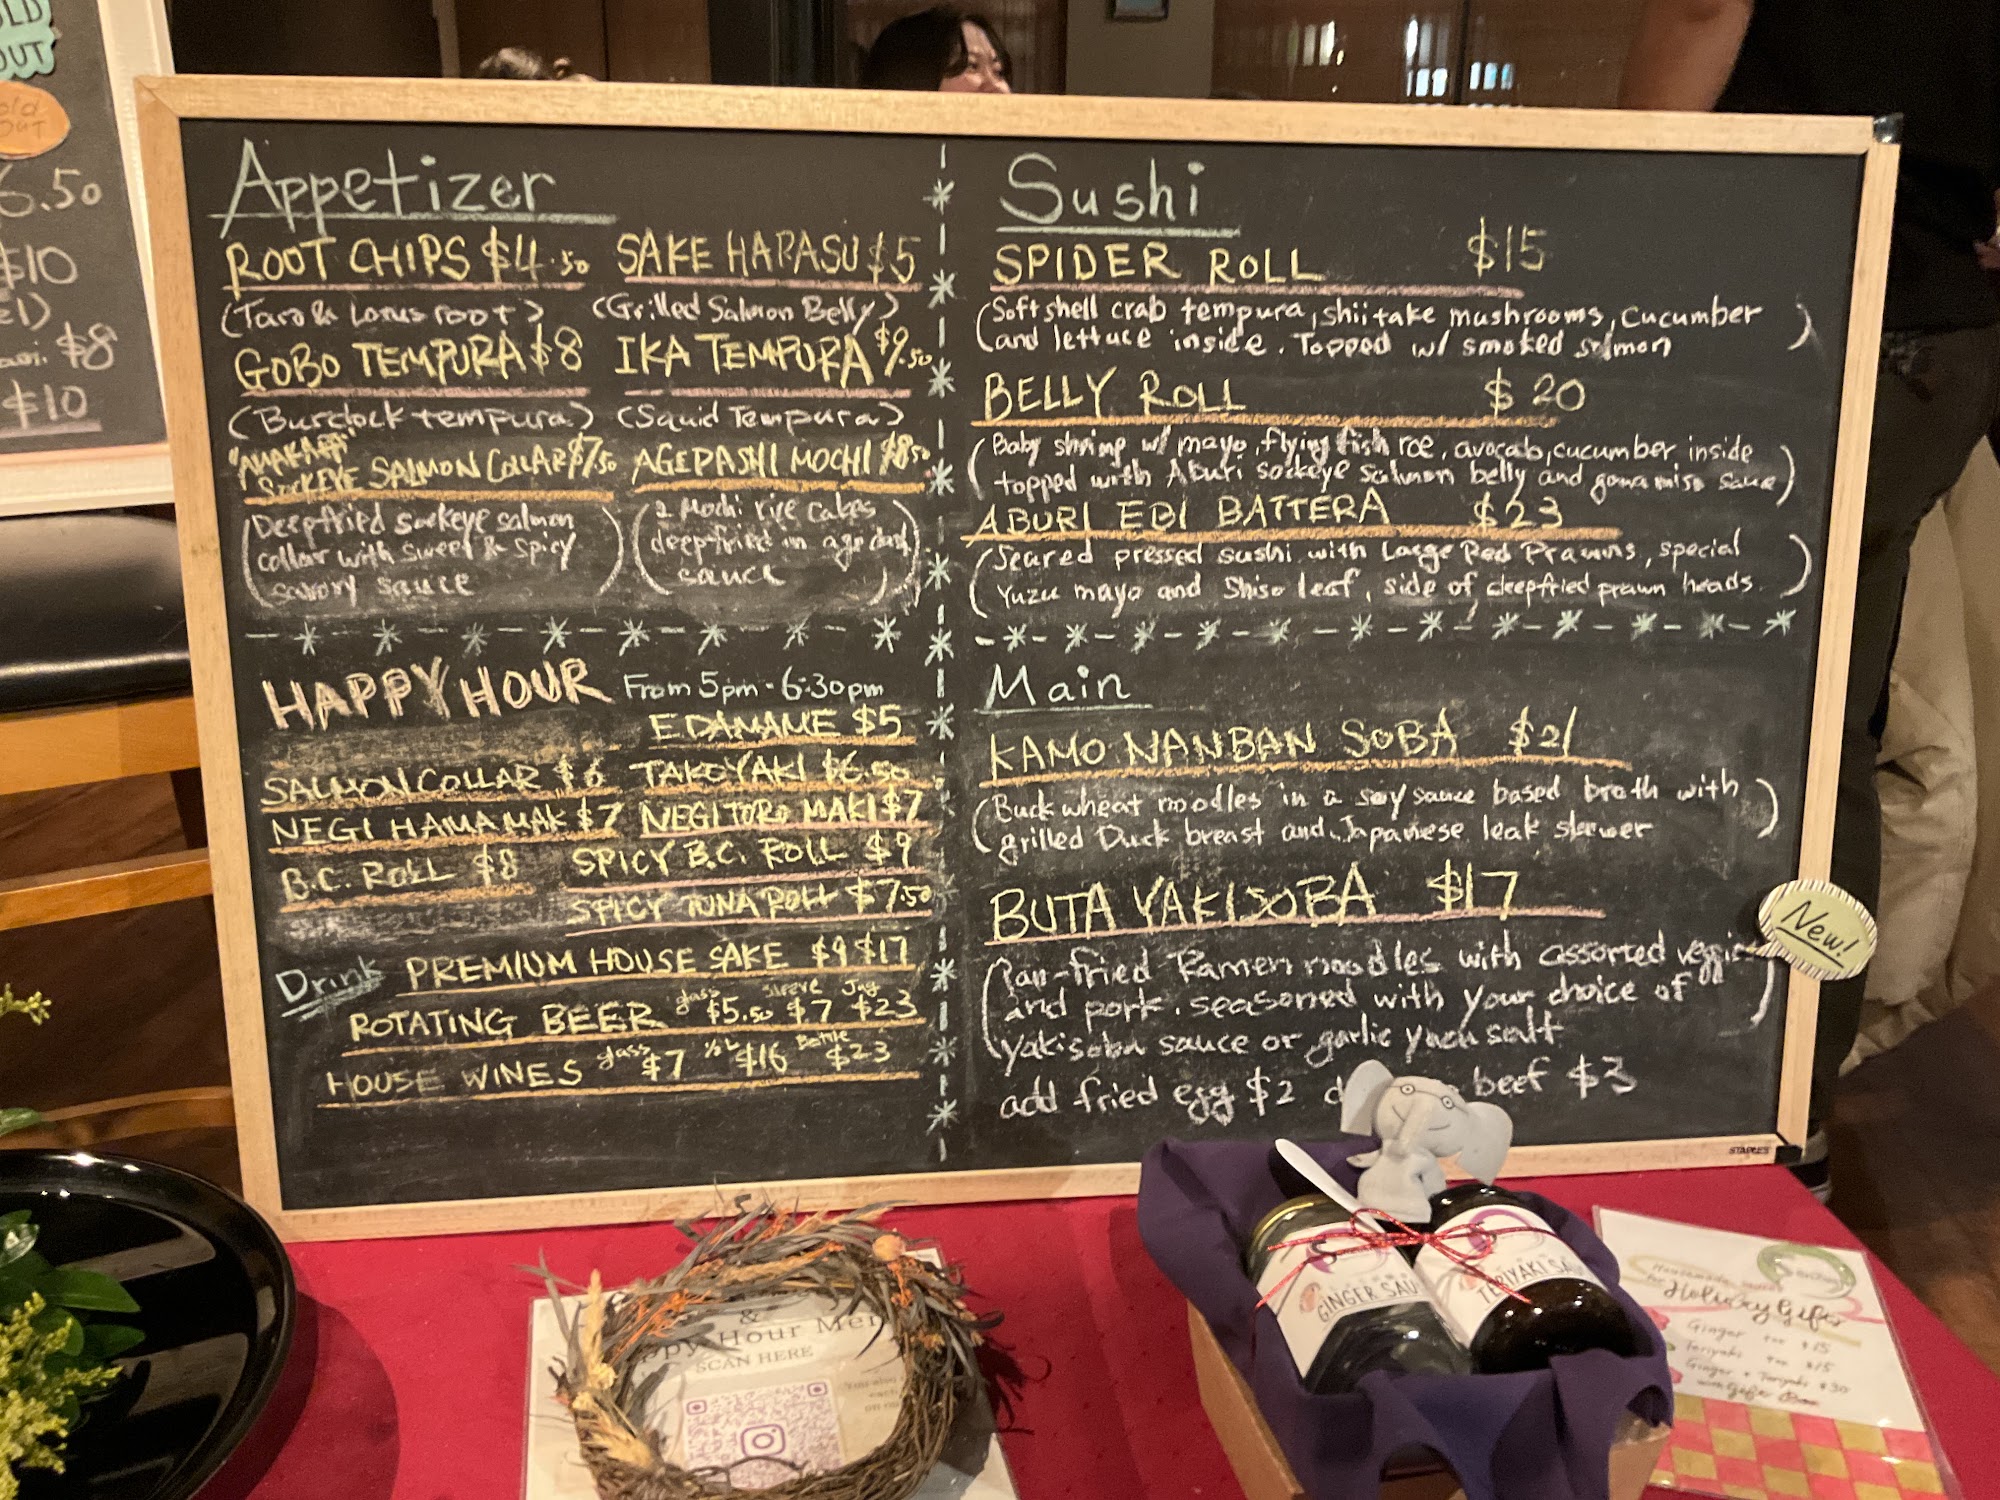 OUT
OUT
6.50
$10
$8
$10
Appetizer
ROOT CHIPS $4.50
(Taro & Lotus root)
SAKE HARASU $5
(Grilled Salmon Belly)
GOBO TEMPURA $8
(Burdock tempura)
IKA TEMPURA $9.50
(Squid Tempura)
SOCKEYE SALMON COLLAR $7.50
(Deepfried sockeye salmon
collar with sweet & spicy
savory sauce)
AGEDASHI MOCHI $8.50
(2 Mochi rice cakes
deepfried in agedashi
sauce)
HAPPY HOUR From 5pm - 6:30pm
EDAMAME $5
SALMON COLLAR $6
TAKOYAKI $6.50
NEGI HAMA MAK $7
NEGITORO MAKI $7
B.C. ROLL $8
SPICY B.C. ROLL $9
SPICY TUNA ROLL $7.50
Drink
PREMIUM HOUSE SAKE $9 $17
ROTATING BEER glass $5.50 sleeve $7 Jug $23
HOUSE WINES glass $7 1/2L $16 Bottle $23
Sushi
SPIDER ROLL $15
(Softshell crab tempura, shiitake mushrooms, cucumber
and lettuce inside. Topped w/ smoked salmon)
BELLY ROLL $20
(Baby shrimp w/ mayo, flying fish roe, avocab, cucumber inside
topped with Aburi sockeye salmon belly and goma miso sauce)
ABURI EBI BATTERA $23
(Seared pressed sushi with Large Red Prawns, special
Yuzu mayo and Shiso leaf, side of deepfried prawn heads.)
Main
KAMO NANBAN SOBA $21
(Buckwheat noodles in a soy sauce based broth with
grilled Duck breast and Japanese leak skewer)
BUTA YAKISOBA $17
New!
(Pan-fried Ramen noodles with assorted veggie
and pork. seasoned with your choice of
yakisoba sauce or garlic yuzu salt)
add fried egg $2
beef $3
STAPLES
&
Hour Men
SCAN HERE
GINGER SAU
TERIYAKI SA
Handmade
for Holiday Gifts
Ginger $15
Teriyaki $15
Ginger + Teriyaki $30